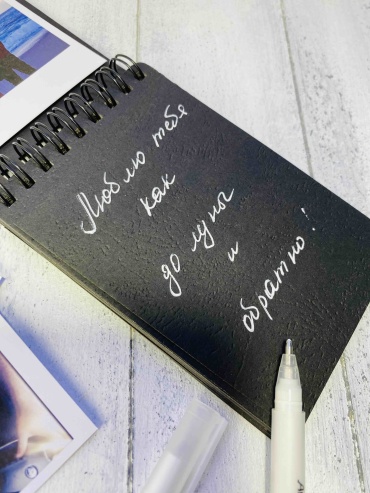 Люблю тебя
как
до луны
и
обратно!